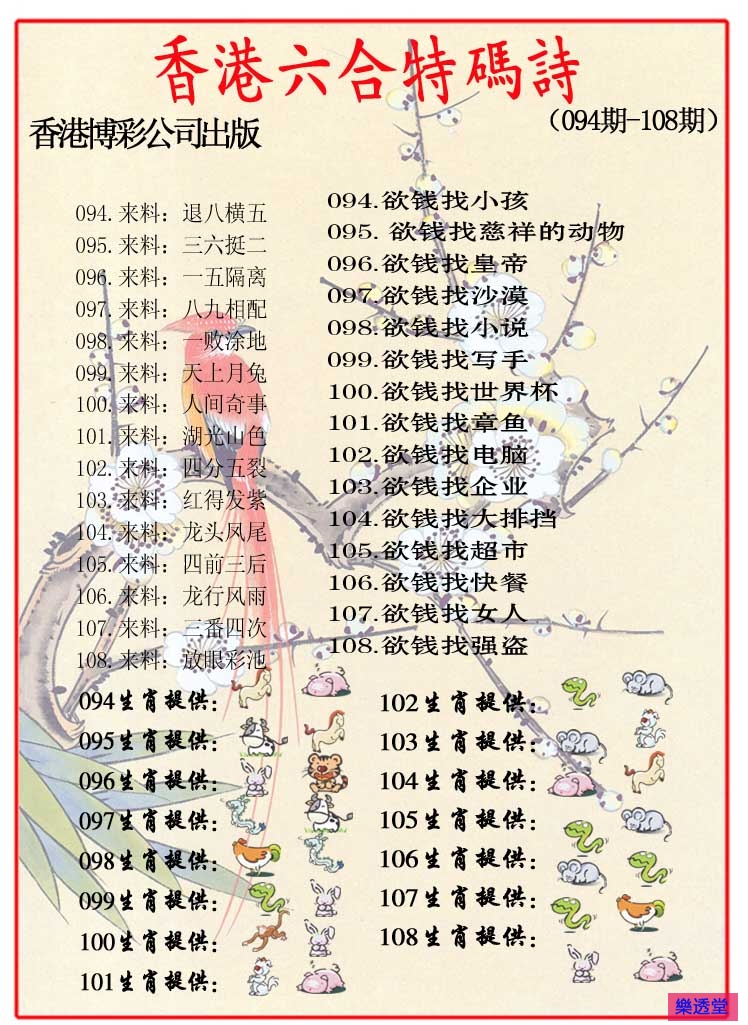 香港六合特碼詩
香港博彩公司出版
（094期-108期）
094.来料：退八横五
095.来料：三六挺二
096.来料：一五隔离
097.来料：八九相配
098.来料：一败涂地
099.来料：天上月兔
100.来料：人间奇事
101.来料：湖光山色
102.来料：四分五裂
103.来料：红得发紫
104.来料：龙头风尾
105.来料：四前三后
106.来料：龙行风雨
107.来料：三番四次
108.来料：放眼彩池
094.欲钱找小孩
095.欲钱找慈祥的动物
096.欲钱找皇帝
097.欲钱找沙漠
098.欲钱找小说
099.欲钱找写手
100.欲钱找世界杯
101.欲钱找章鱼
102.欲钱找电脑
103.欲钱找企业
104.欲钱找大排挡
105.欲钱找超市
106.欲钱找快餐
107.欲钱找女人
108.欲钱找强盗
094生肖提供：
095生肖提供：
096生肖提供：
097生肖提供：
098生肖提供：
099生肖提供：
100生肖提供：
101生肖提供：
102生肖提供：
103生肖提供：
104生肖提供：
105生肖提供：
106生肖提供：
107生肖提供：
108生肖提供：
樂透堂